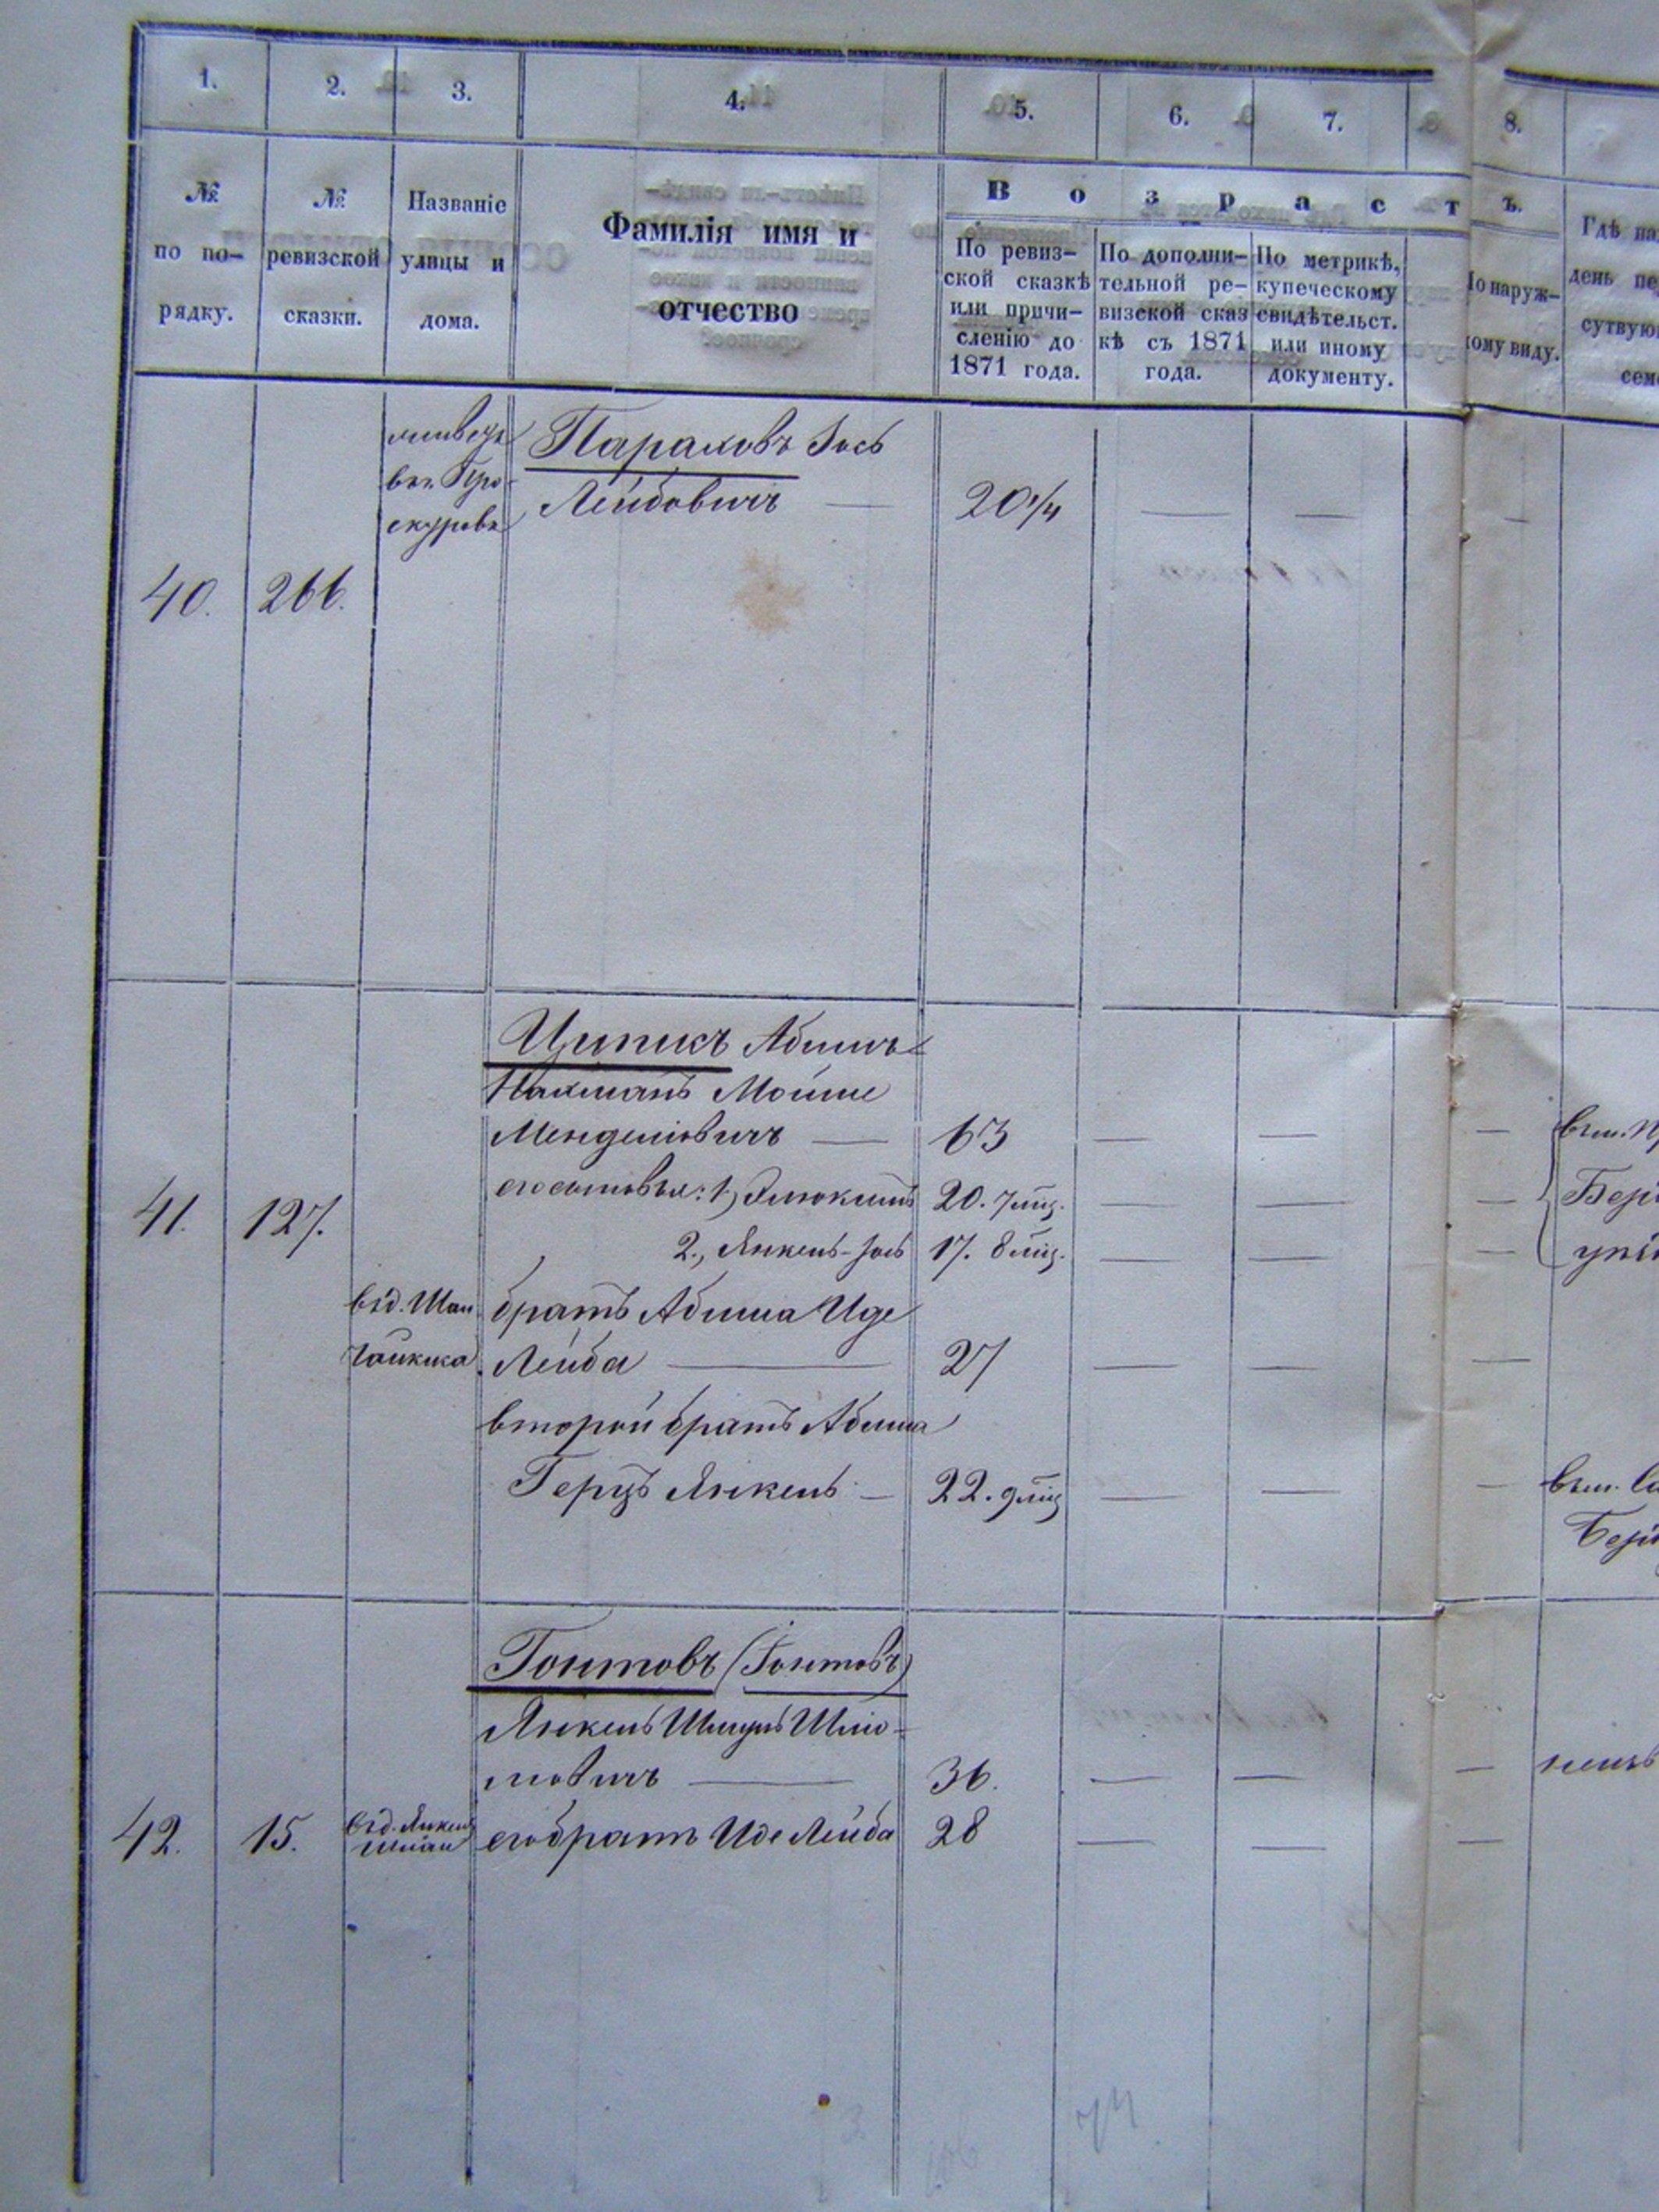 1. 2. 3. 4. 5. 6. 7. 8.
№ по по- рядку.
№ ревизской сказки.
Названіе улицы и дома.
Фамилія имя и
отчество
Возрастъ.
По ревиз-
ской сказкѣ
или причи-
сленію до
1871 года.
По дополни-
тельной ре-
визской сказ
кѣ съ 1871
года.
По метрикѣ,
купеческому
свидѣтельст.
или иному
документу.
По наруж-
ному виду.
Гдѣ на
день пе
сутвую
сем
живетъ
въ г. Про-
скуровѣ
Параховъ Іось
Лейбовичъ — 20 1/4 — — —
40. 266.
Ципикъ Абишъ
Нахманъ Мойше
Менделіовичъ — 63 — — —
его сыновья: 1, Элюкимъ 20. 7 мц. — — —
2., Янкель-Іось 17. 8 мц. — — —
41. 127.
въ д.
братъ Абиша Иде
Лейба — 27 — — —
второй братъ Абиша
Герцъ Янкель — 22. 9 мц — — —
Гонтовъ (Гонтовъ)
Янкель Шмуль Шлio-
мовичъ — 36. — — —
42. 15. въ д. Янкеля
его братъ Иде Лейба 28 — — —